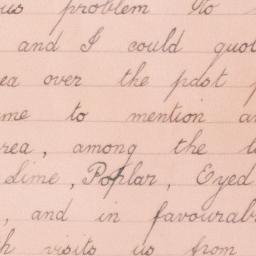 us problem to
and I could quot
ea over the past
me to mention a
rea, among the
Lime, Poplar, Eyed
, and in favourab
h visits us from